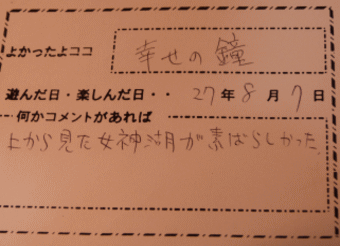 よかったよココ 幸せの鐘
遊んだ日・楽しんだ日・・ 27年8月7日
何かコメントがあれば
上から見た女神湖が素ばらしかった